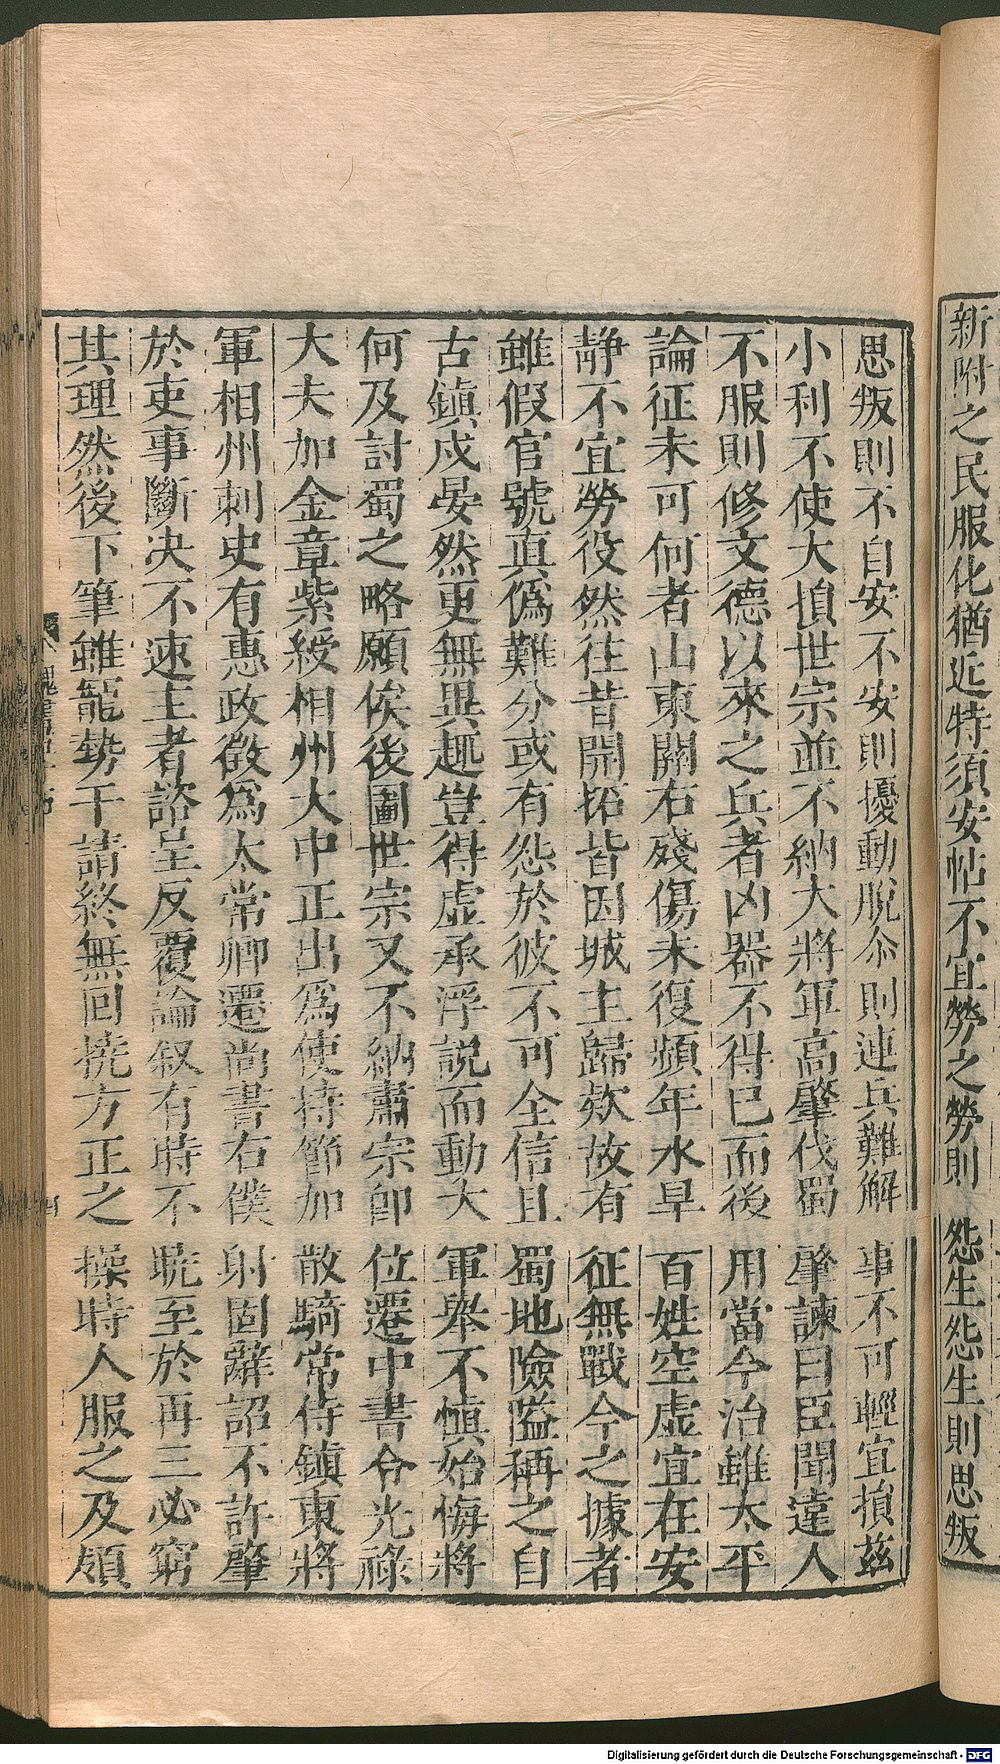 新附之民服化猶近特須安帖不宜勞之勞則怨生怨生則思叛
思叛則不自安不安則擾動脫尒則連兵難解事不可輕宜損兹
小利不使大損世宗並不納大將軍高肇伐蜀肇諫曰臣聞遠人
不服則修文德以來之兵者凶器不得已而後用當今治雖太平
論征未可何者山東關右殘傷未復頻年水旱百姓空虛宜在安
靜不宜勞役然往昔開拓皆因城主歸欵故有征無戰今之據者
雖假官號真僞難分或有怨於彼不可全信且蜀地險隘稱之自
古鎮戍晏然更無異趣豈得虛承浮説而動大軍舉不慎始悔將
何及討蜀之略願俟後圖世宗又不納肅宗卽位遷中書令光祿
大夫加金章紫綬相州大中正出爲使持節加散騎常侍鎮東將
軍相州刺史有惠政徵爲太常卿遷尚書右僕射固辭詔不許肇
於吏事斷决不速主者諮呈反覆論叙有時不曉至於再三必窮
其理然後下筆雖寵勢干請終無回撓方正之操時人服之及領
四
Digitalisierung gefördert durch die Deutsche Forschungsgemeinschaft - DFG